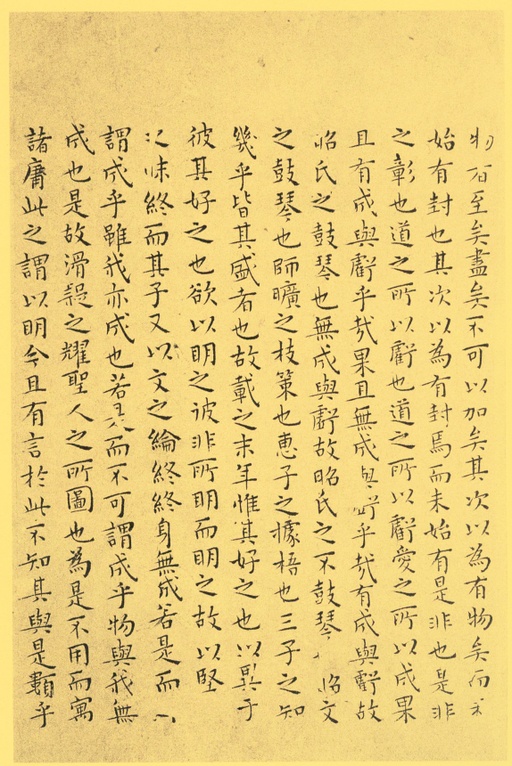 物者至矣盡矣不可以加矣其次以為有物矣而未
始有封也其次以為有封焉而未始有是非也是非
之彰也道之所以虧也道之所以虧愛之所以成果
且有成與虧乎哉果且無成與虧乎哉有成與虧故
昭氏之鼓琴也無成與虧故昭氏之不鼓琴昭文
之鼓琴也師曠之枝策也惠子之據梧也三子之知
幾乎皆其盛者也故載之末年惟其好之也以異于
彼其好之也欲以明之彼非所明而明之故以堅
之昧終而其子又以文之綸終終身無成若是而
謂成乎雖我亦成也若是而不可謂成乎物與我無
成也是故滑疑之耀聖人之所圖也為是不用而寓
諸庸此之謂以明今且有言於此不知其與是類乎